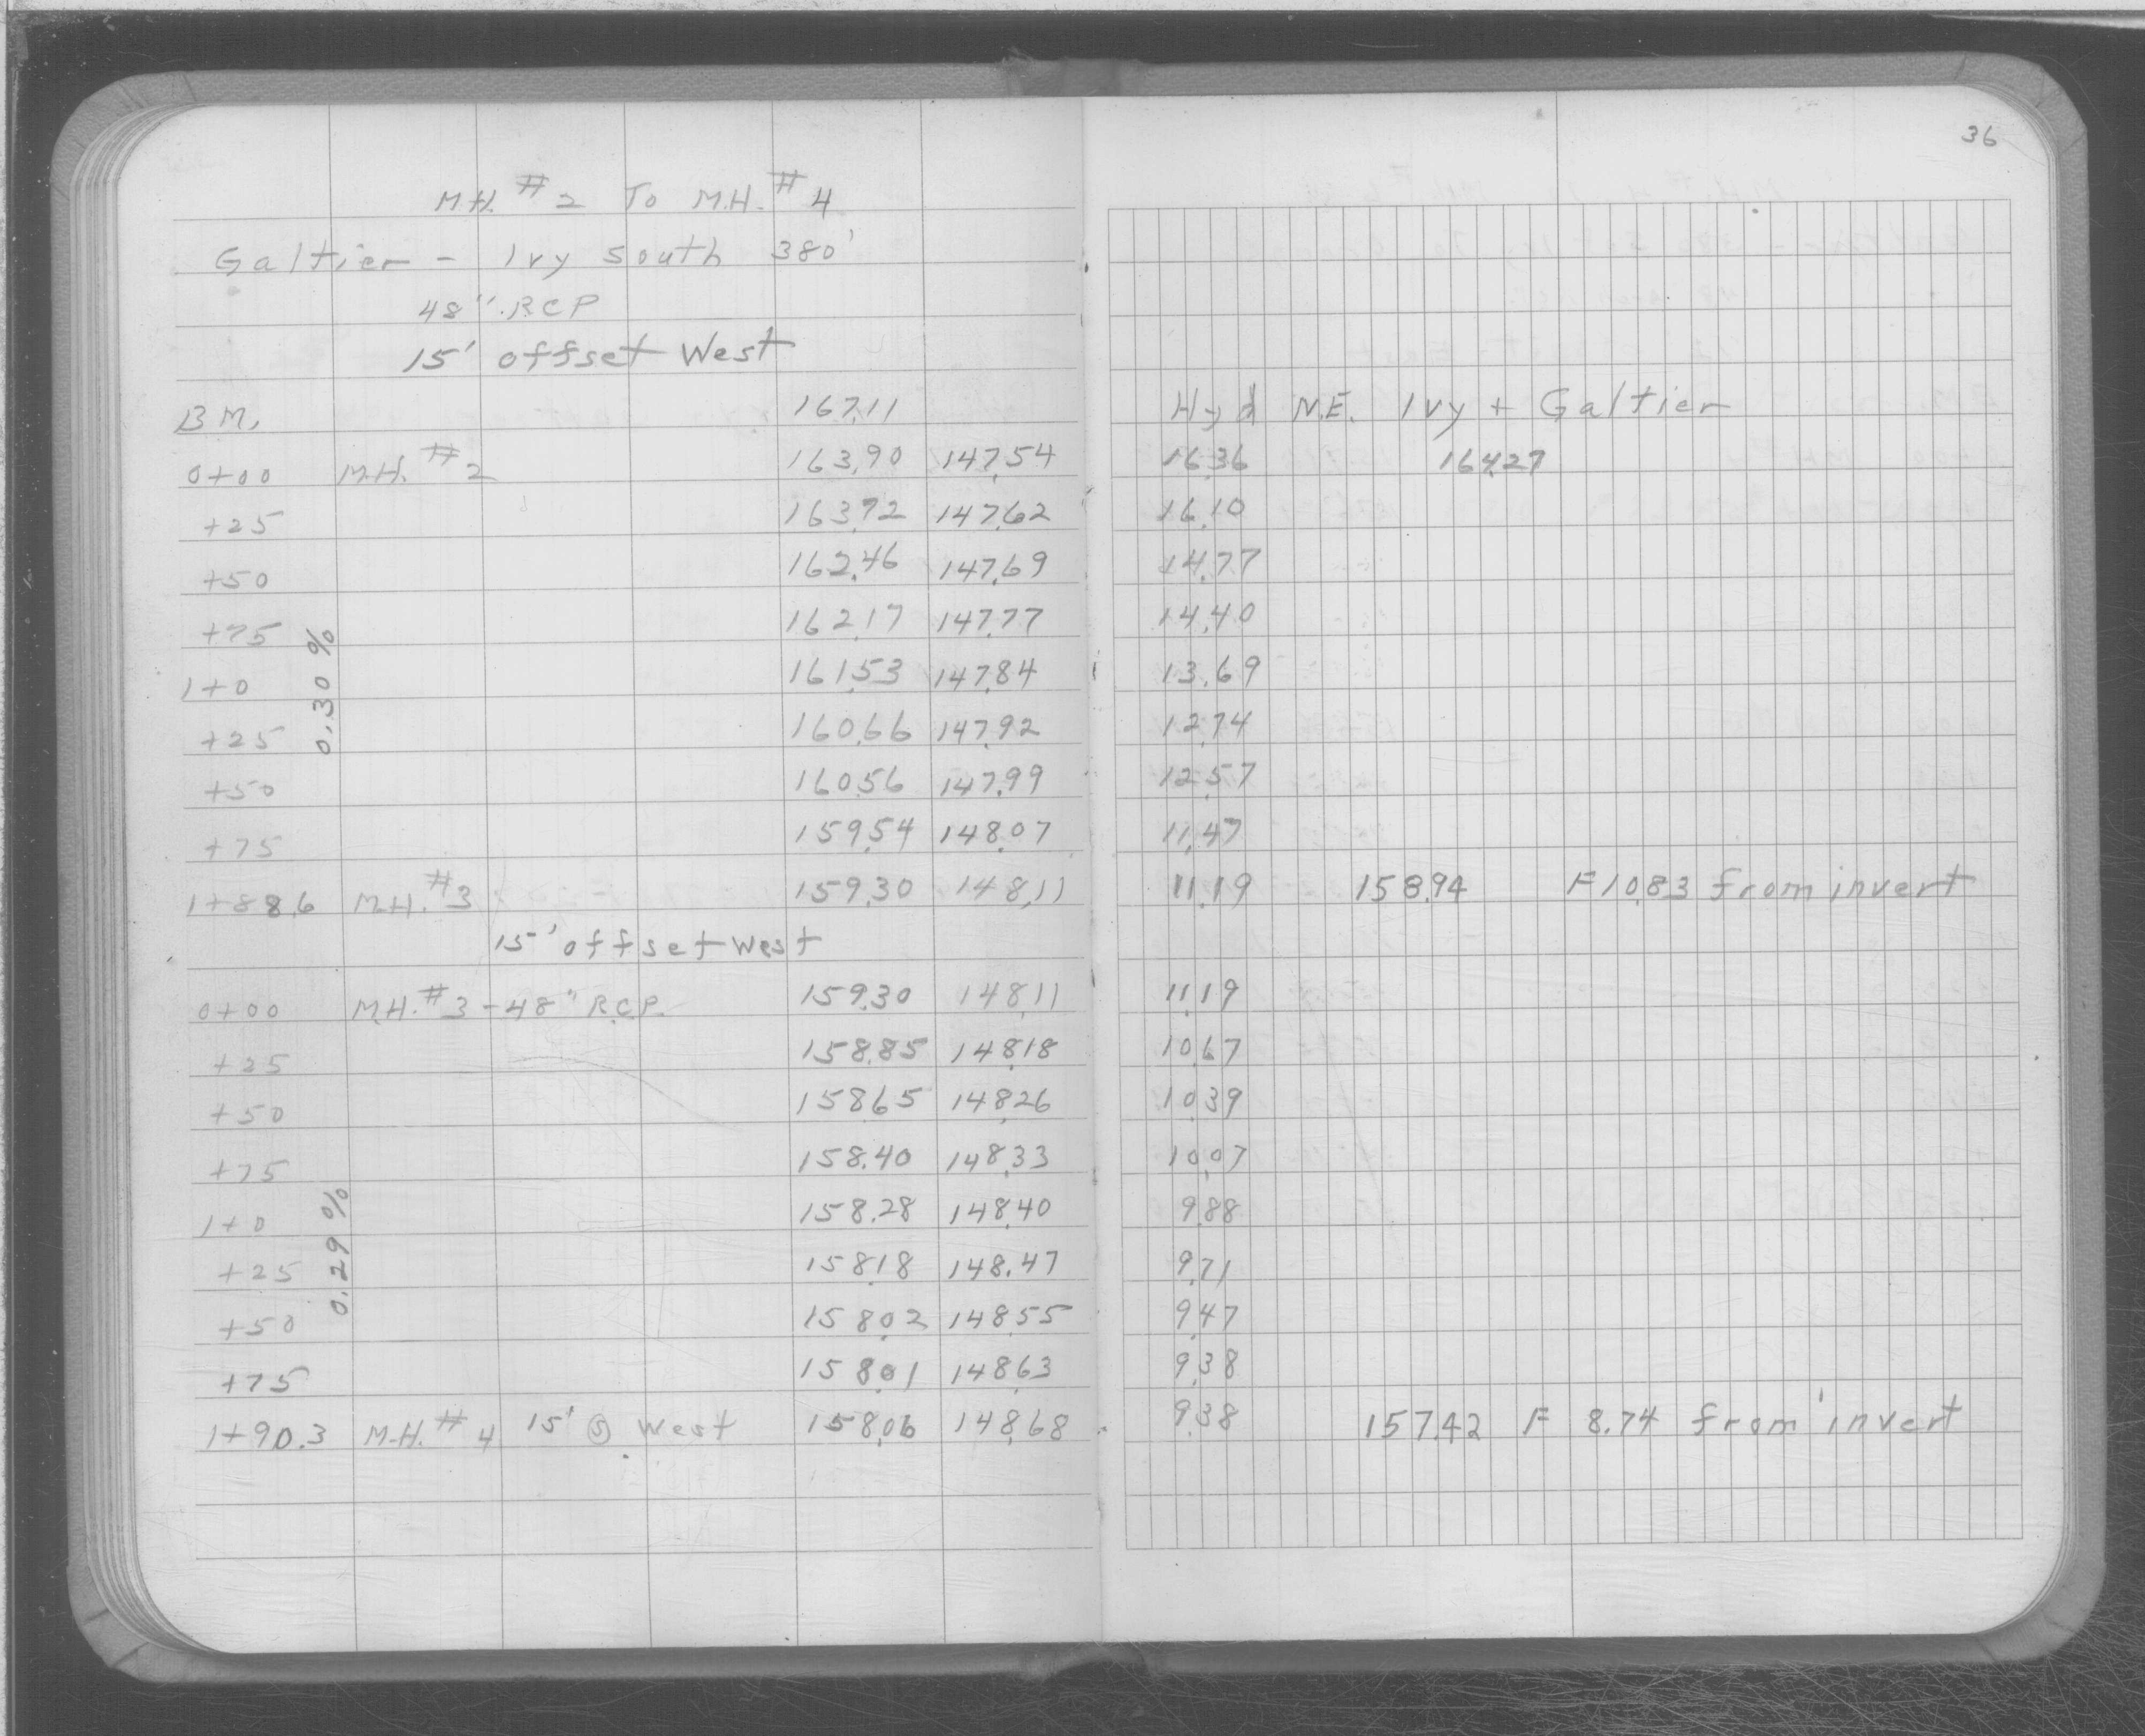 36
M.H. #2 To M.H. #4
Galtier - Ivy South 380'
48" RCP
15' offset West
B M. 167.11 Hyd N.E. Ivy + Galtier
0+00 M.H. #2 163.90 147.54 16.36 164.27
+25 163.72 147.62 16.10
+50 162.46 147.69 14.77
+75 162.17 147.77 14.40
0.30 %
1+0 161.53 147.84 13.69
+25 160.66 147.92 12.74
+50 160.56 147.99 12.57
+75 159.54 148.07 11.47
1+88.6 M.H. #3 159.30 148.11 11.19 158.94 F 10.83 from invert
15' offset West
0+00 M.H. #3 - 48" R.C.P. 159.30 148.11 11.19
+25 158.85 148.18 10.67
+50 158.65 148.26 10.39
+75 158.40 148.33 10.07
1+0 158.28 148.40 9.88
0.29 %
+25 158.18 148.47 9.71
+50 158.02 148.55 9.47
+75 158.01 148.63 9.38
1+90.3 M.H. #4 15' West 158.06 148.68 9.38 157.42 F 8.74 from invert